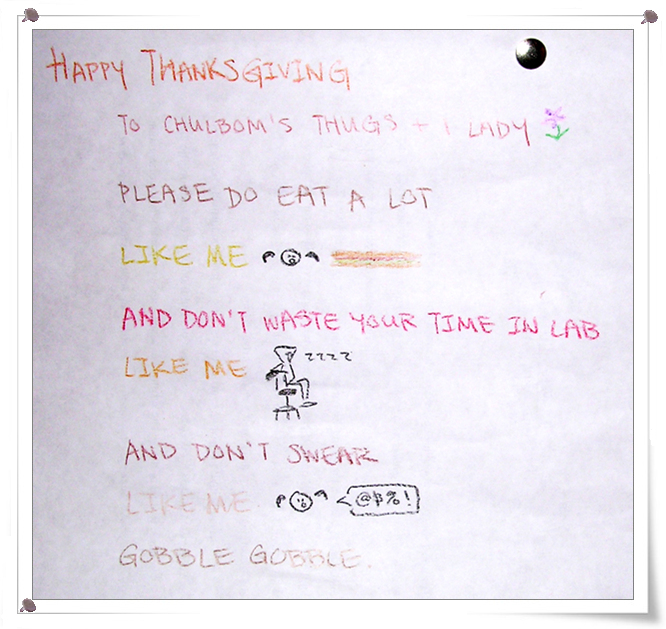 HAPPY THANKSGIVING
TO CHULBOM'S THUGS + 1 LADY
PLEASE DO EAT A LOT
LIKE ME
AND DON'T WASTE YOUR TIME IN LAB
LIKE ME zzzz
AND DON'T SWEAR
LIKE ME @$%!
GOBBLE GOBBLE.